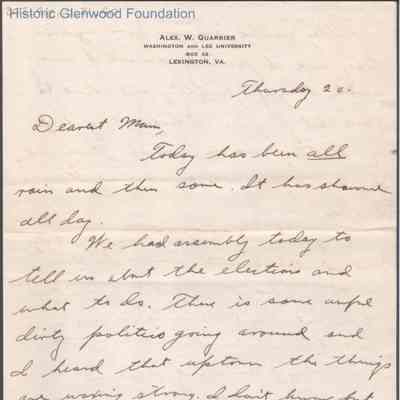 Historic Glenwood Foundation
ALEX. W. QUARRIER
WASHINGTON AND LEE UNIVERSITY
BOX 52
LEXINGTON, VA.
Thursday
Dearest Mum,
Today has been all
rain and then some. It has showered
all day.
We had assembly today to
tell us about the elections and
what to do. There is some awful
dirty politics going around and
I heard that uptown the things
are waxing strong. I don't know but